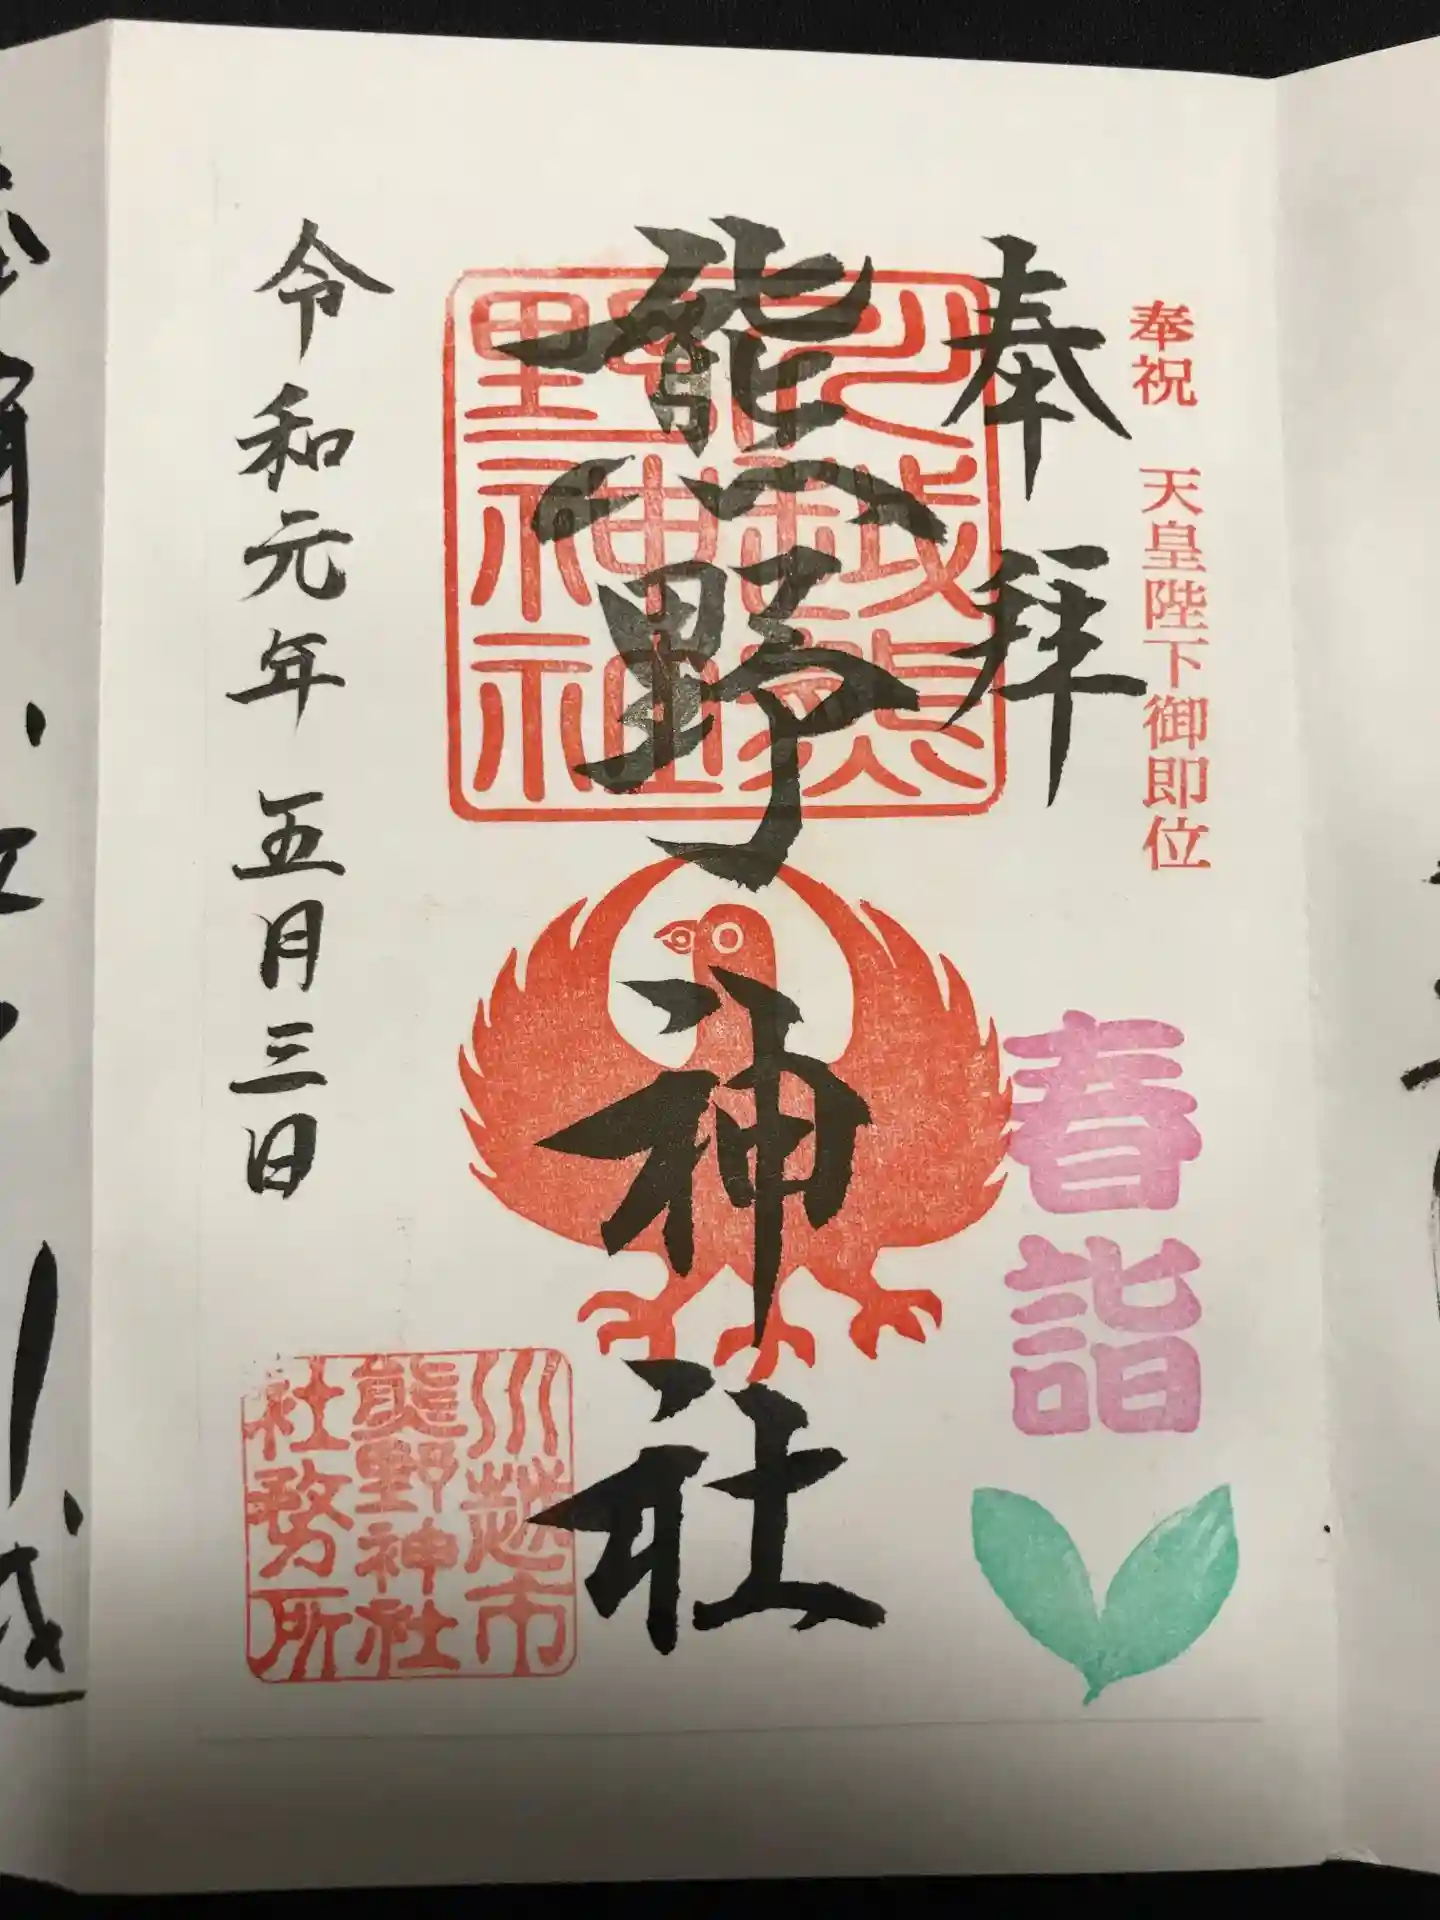 奉祝 天皇陛下御即位
奉拝
春詣
熊野神社
川越熊
野神社
川越市
熊野神社
社務所
令和元年五月三日